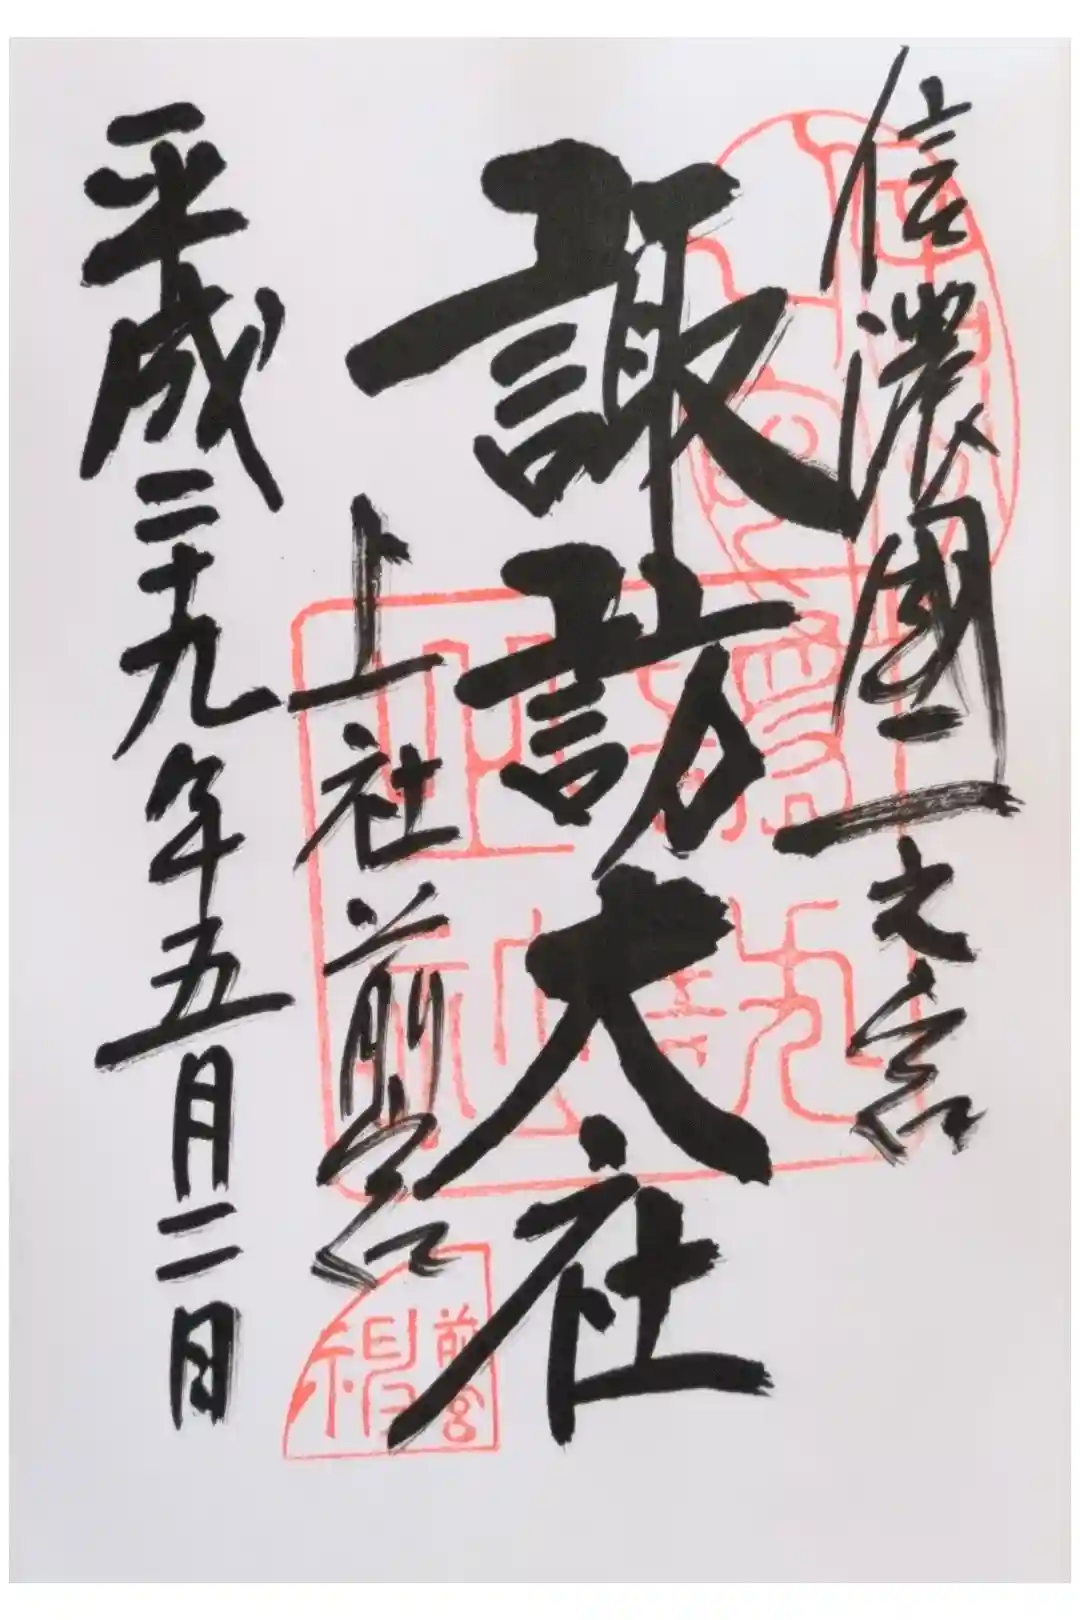 信濃國一之宮
諏訪大社
上社前宮
平成二十九年五月二日
前宮